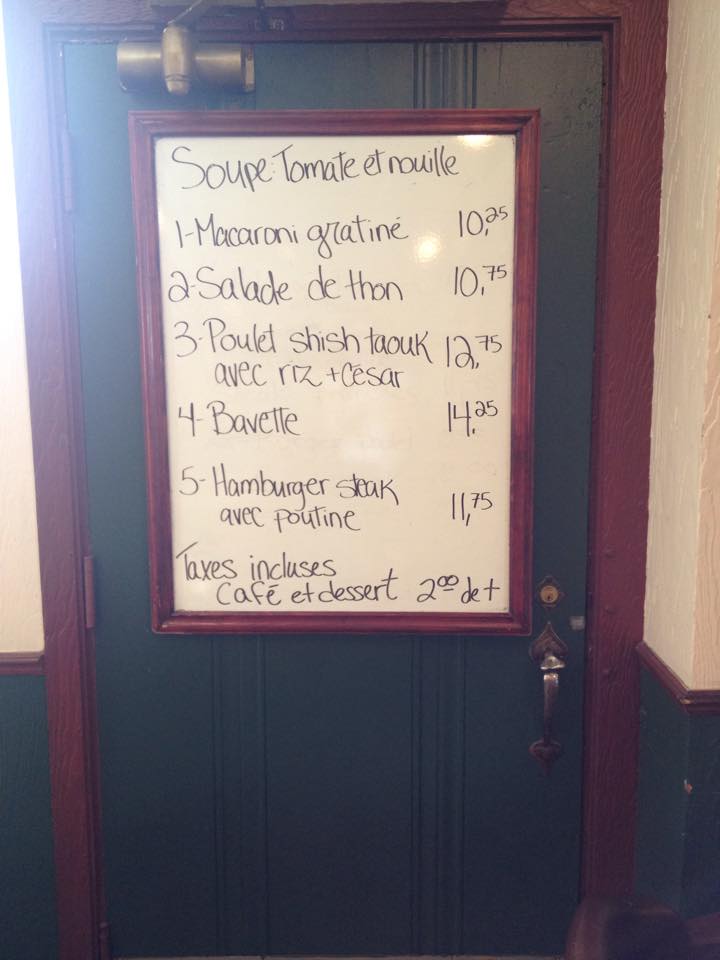 Soupe: Tomate et nouille
1-Macaroni gratiné 10,25
2-Salade de thon 10,75
3-Poulet shish taouk 12,75
avec riz + César
4-Bavette 14,25
5-Hamburger steak
avec poutine 11,75
Taxes incluses
Café et dessert 2.00 de +